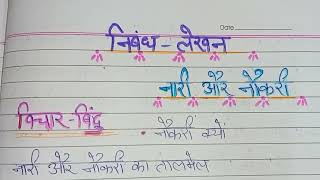 Date
निबंध-लेखन
नारी और नौकरी
विचार-बिंदु
नौकरी क्यों
नारी और नौकरी का तालमेल